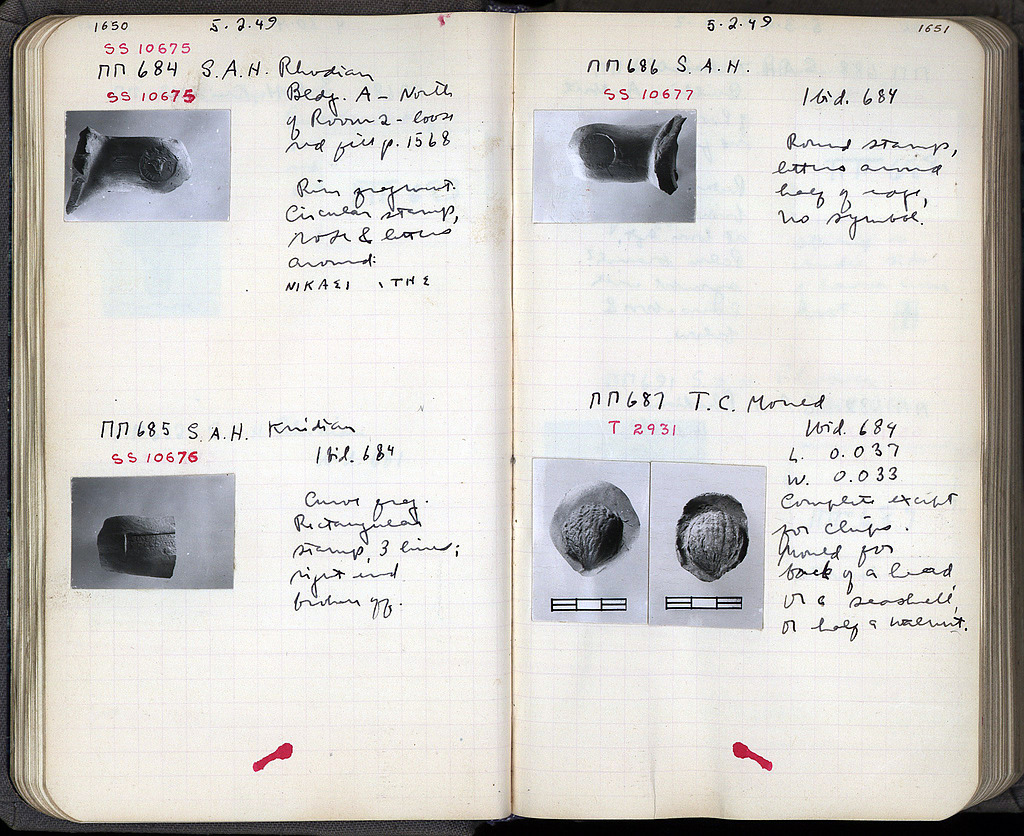 1650
5.2.49
SS 10675
ΠΠ 684 S.A.H. Rhodian
SS 10675
Bldg. A – North
of Room 2 – loose
red fill p. 1568
Rim fragment.
Circular stamp,
rose & letters
around:
ΝΙΚΑΣΙ ΤΗΣ
ΠΠ 685 S.A.H. Knidian
SS 10676
Ibid. 684
Curve frag.
Rectangular
stamp, 3 lines;
right end
broken off.
5.2.49
1651
ΠΠ 686 S.A.H.
SS 10677
Ibid. 684
Round stamp,
letters around
half of edge,
no symbol.
ΠΠ 687 T.C. Mould
T 2931
Ibid. 684
L. 0.037
W. 0.033
Complete except
for chips.
Mould for
back of a head,
or a seashell,
or half a walnut.